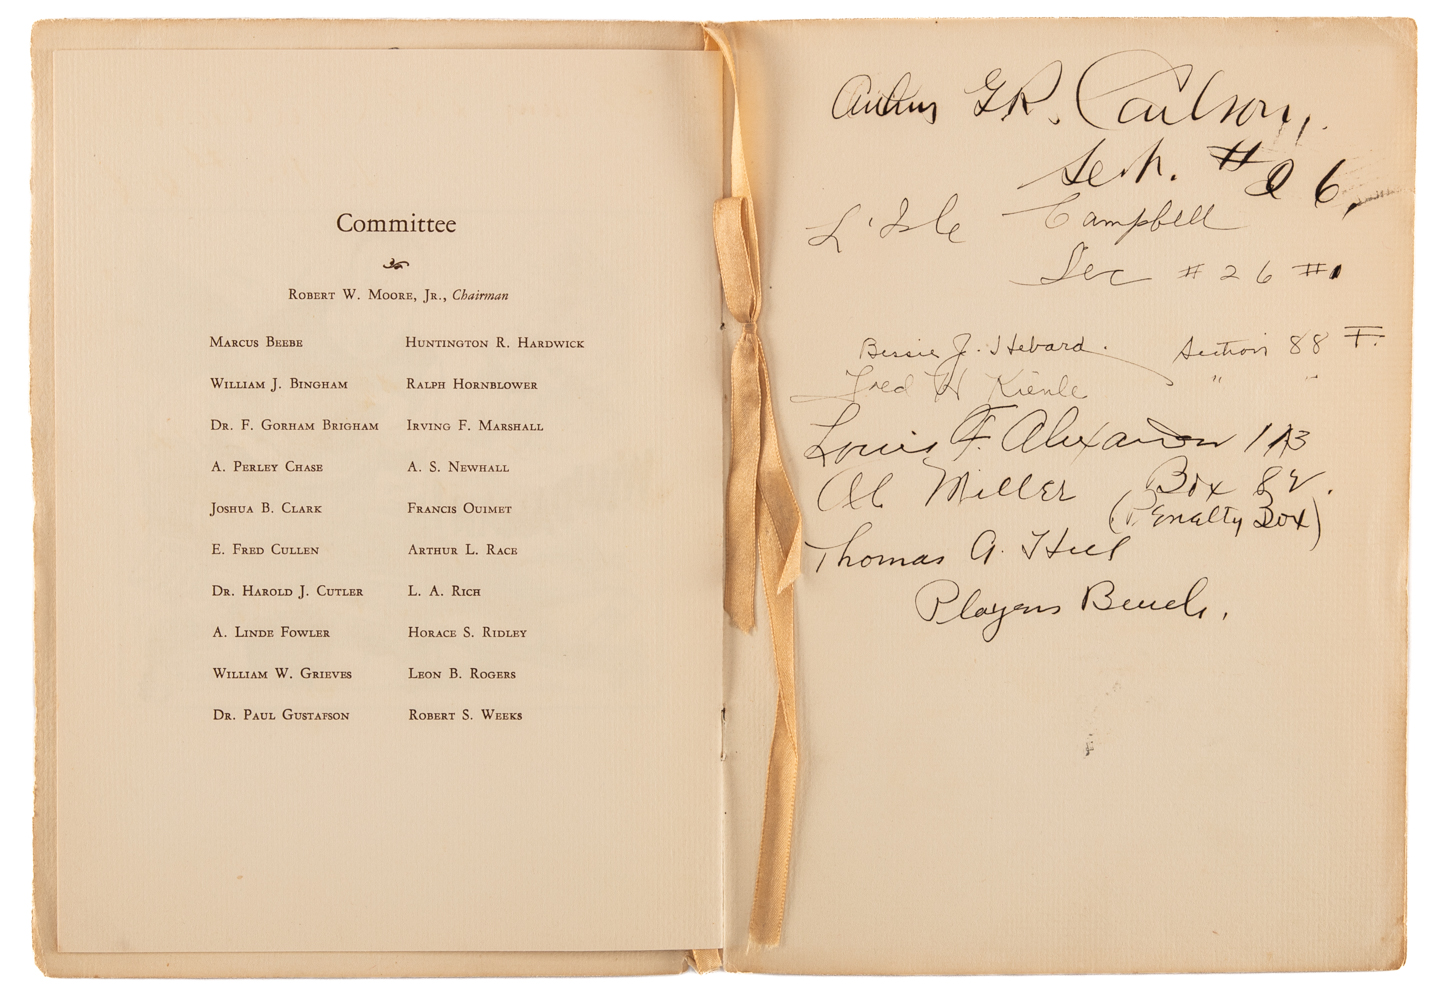 Committee
Robert W. Moore, Jr., Chairman
Marcus Beebe
William J. Bingham
Dr. F. Gorham Brigham
A. Perley Chase
Joshua B. Clark
E. Fred Cullen
Dr. Harold J. Cutler
A. Linde Fowler
William W. Grieves
Dr. Paul Gustafson
Huntington R. Hardwick
Ralph Hornblower
Irving F. Marshall
A. S. Newhall
Francis Ouimet
Arthur L. Race
L. A. Rich
Horace S. Ridley
Leon B. Rogers
Robert S. Weeks
Arthur G.R. Carlson,
#26,
L'Isle Campbell
Sec #26 #1
Bessie J. Hebard. Section 88 F.
Fred H Kienle " "
Louis F. Alexander 113
Al Miller Box 82.
(Penalty Box)
Thomas A. Hill
Players Bench.